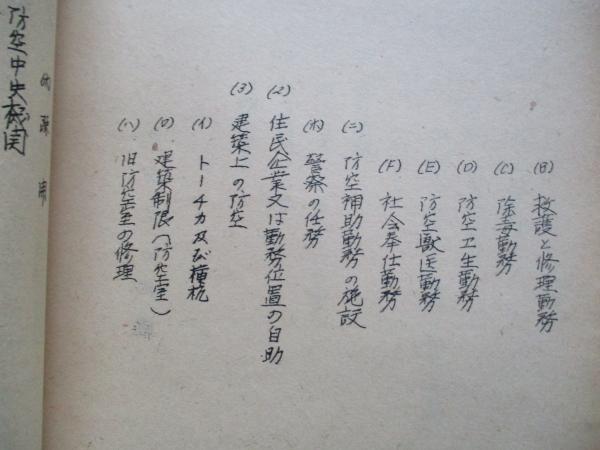 (B) 救護と修理勤務
(C) 除毒勤務
(D) 防空卫生勤務
(E) 防空獣医勤務
(F) 社会奉仕勤務
(ニ) 防空補助勤務の施設
(ホ) 警察の任務
(2) 住民企業又は勤務位置の自助
(3) 建築上の防空
(イ) トーチカ及び横杭
(ロ) 建築制限(防空室)
(ハ) 旧防空室の修理
防空中央機関